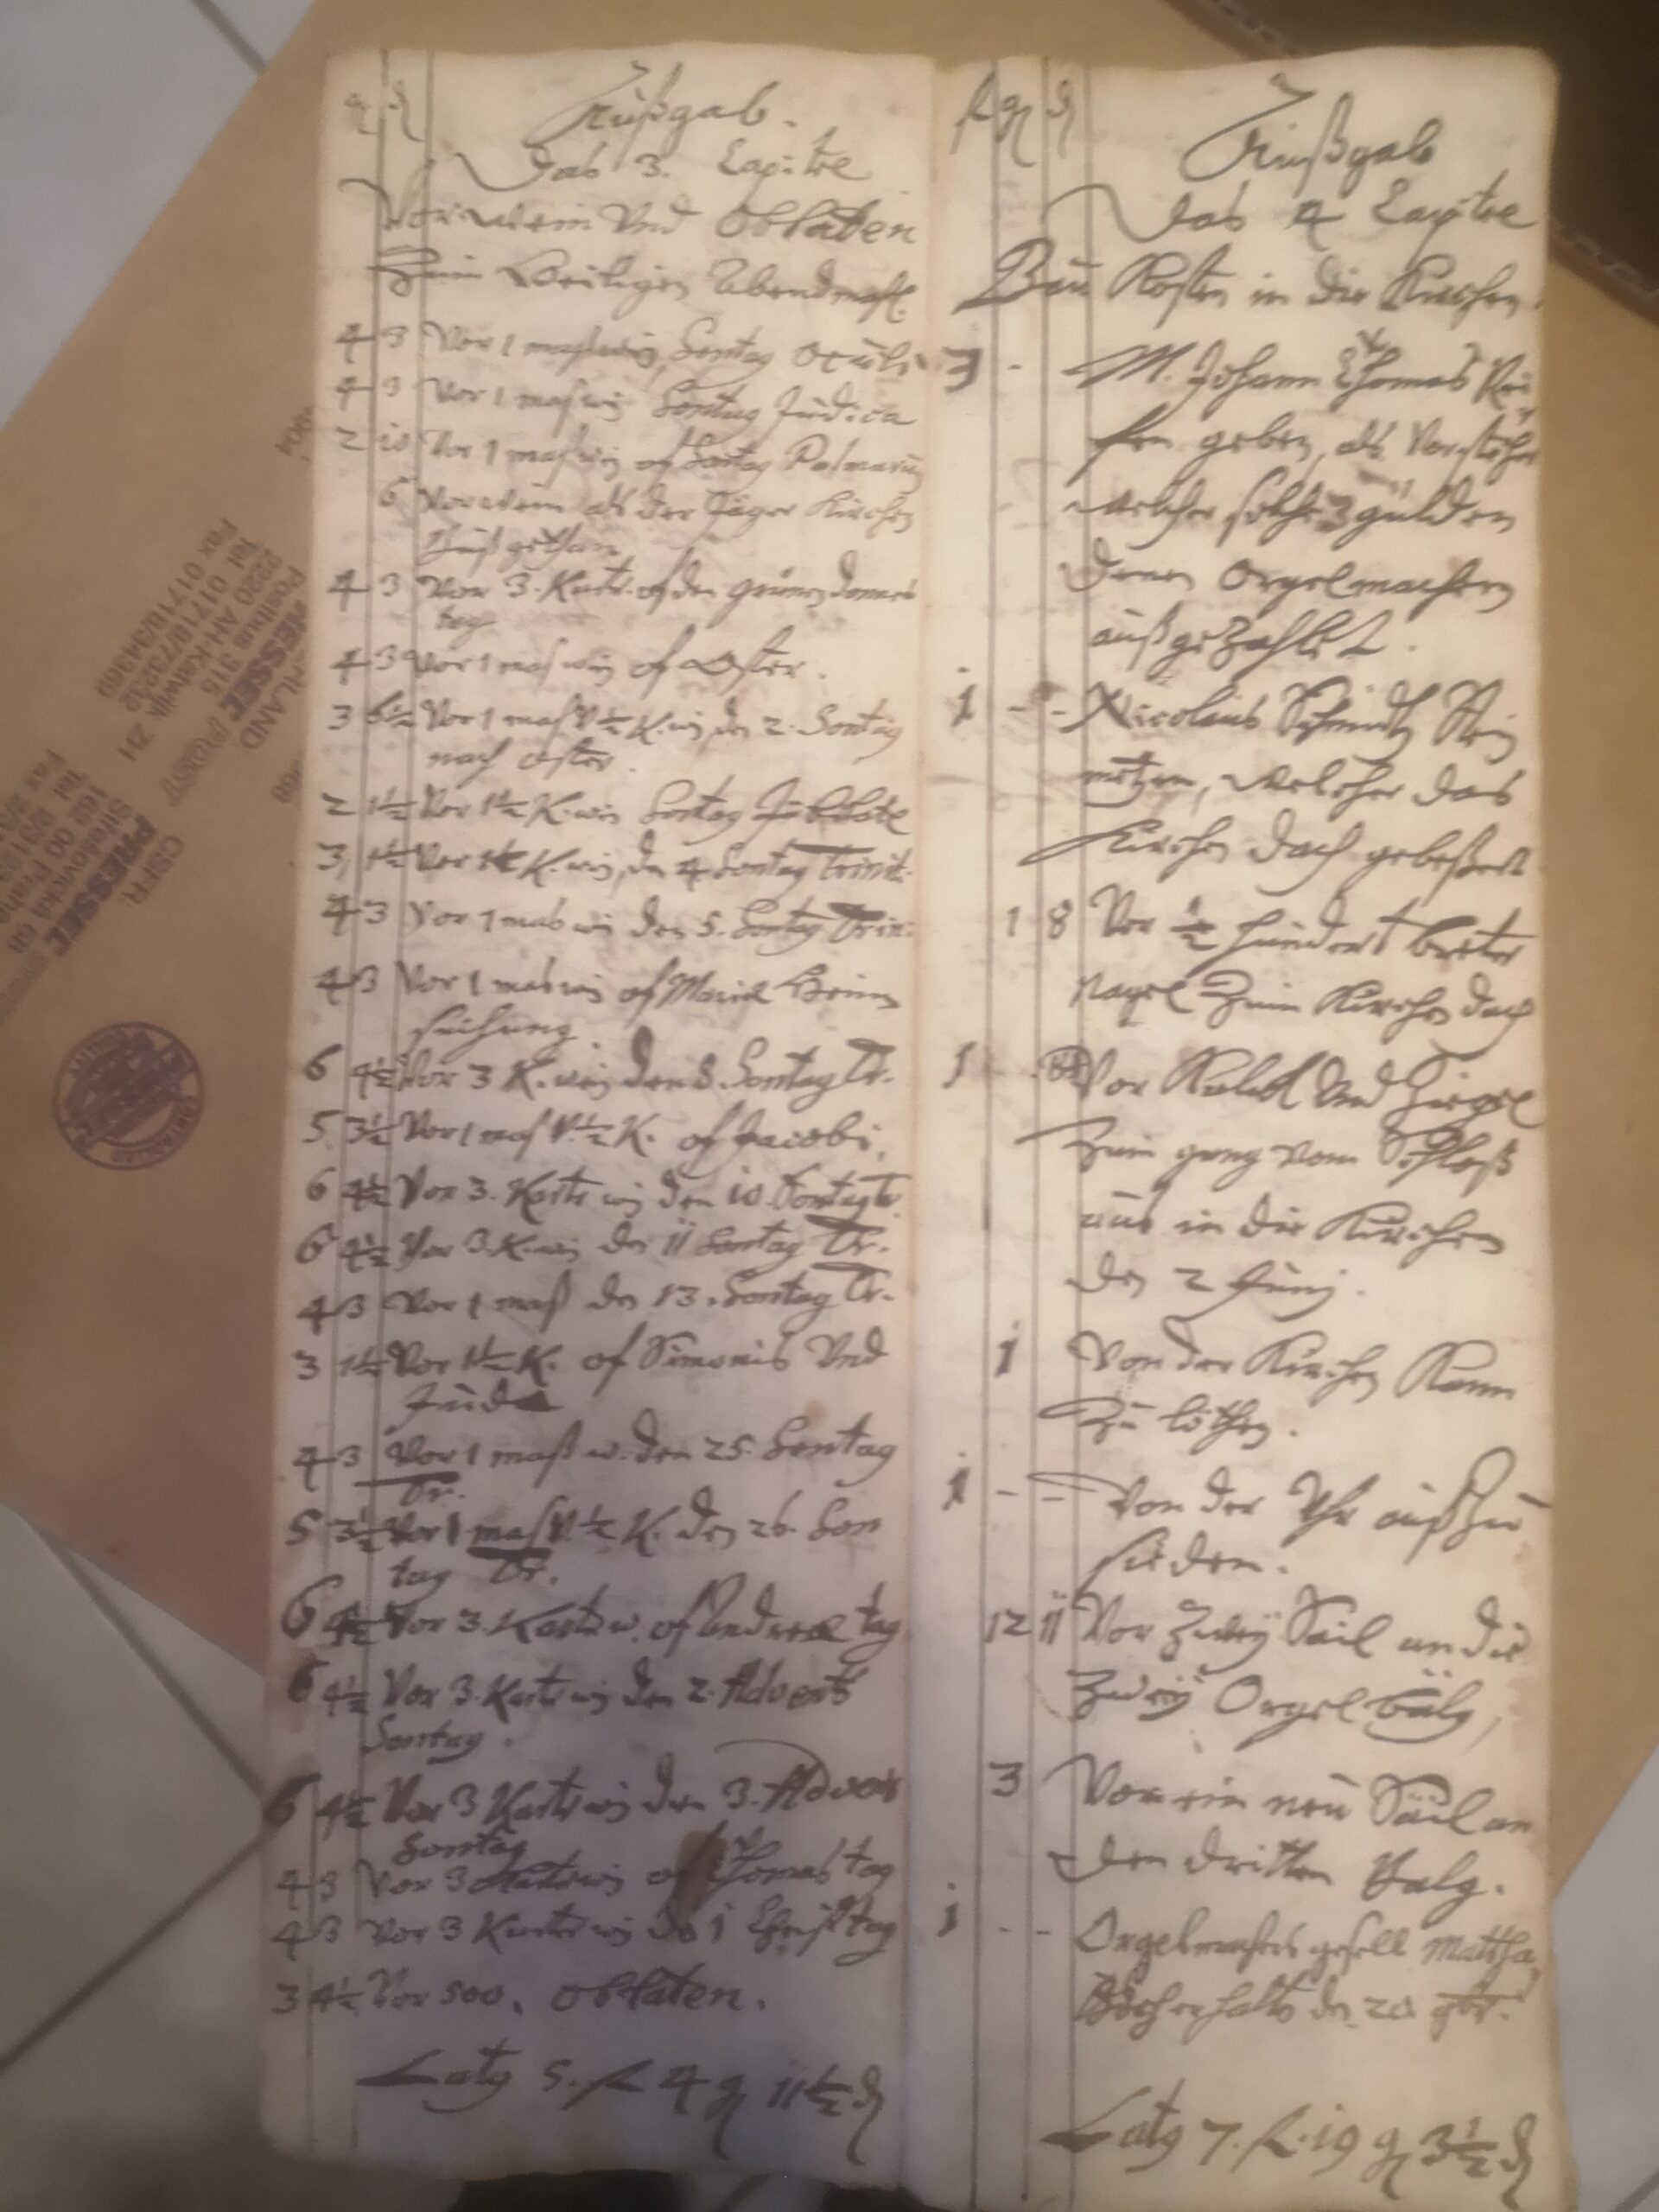 gl ₰ Außgab.
Das 3. Capitre
Vor wein Vnd Oblaten
Zum Heiligen Abendmahl.
4 3 Vor 1 maß wein Sontag Oculi
4 3 Vor 1 maß wein Sontag Judica
2 10 Vor 1 maß wein of Sontag Palmarum
6 Vor wein als der Jäger Kirchen
Buß gethan
4 3 Vor 3. Kart. of den grünen donners
tag
4 3 Vor 1 maß wein of Oster.
3 6½ Vor 1 maß V. ½ K. wein den 2. Sontag
nach Oster.
2 1½ Vor 1½ K. wein Sontag Jubilate
3 1½ Vor 1½ K. wein, den 4 Sontag Trinit:
4 3 Vor 1 mas wein den 5. Sontag Trin:
4 3 Vor 1 mas wein of Mariæ Heim
suchung.
6 4½ Vor 3 K. wein den 8. Sontag Tr.
5 3½ Vor 1 maß V. ½ K. of Jacobi.
6 4½ Vor 3. Kart wein den 10. Sontag Tr.
6 4½ Vor 3. K. wein den 11 Sontag Tr.
4 3 Vor 1 maß den 13. Sontag Tr.
3 1½ Vor 1½ K. of Simonis Vnd
Judæ
4 3 Vor 1 maß w. den 25. Sontag
Tr.
5 3½ Vor 1 maß V. ½ K. den 26. Son
tag Tr.
6 4½ Vor 3. Kart w. of Andreæ tag
6 4½ Vor 3. Kart wein den 2. Advents
Sontag.
6 4½ Vor 3 Kart wein den 3. Advents
Sontag
4 3 Vor 3 wein of Thomas tag
4 3 Vor 3 Kart wein den 1 Christtag
3 4½ Vor 500. Oblaten.
Latq 5. fl 4 gl 11½ ₰
fl gl ₰ Außgab
Das 4 Capitre
Bau Kosten in der Kirchen.
3 - M. Johann Thomas
geben, als Vorsteher
welcher solche 3 gülden
denen Orgelmachern
außgezahlet.
1 - - Nicolaus Schmidt Stein
metzen, welcher das
Kirchen dach gebeßert
1 8 Vor ½ hundert breter
Nagel Zum Kirchen dach
1 - Vor Kalck Vnd Ziegel
Zum gang vom Schloß
aus in die Kirchen
den 2 Junj.
1 Von der Kirchen Kann
Zu löthen.
1 - - Von der Uhr auß Zu
sieden.
12 11 Vor Zwey Sail an die
Zwey Orgel bälg,
3 Vor ein neu Sail an
den dritten Balg.
1 - - Orgelmachers gesell Mattha
den 20
Latq 7. fl. 19 gl 3½ ₰
CSFR
PRESSEE
Střešovická 68
162 00 Praha
Postbus 3115
2220 AH Katwijk ZH
Tel 01718/73232
Fax 01718/34369